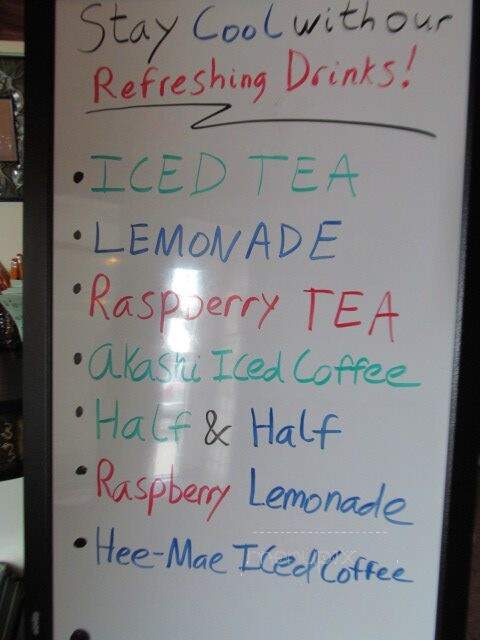 Stay Cool with our
Refreshing Drinks!
• ICED TEA
• LEMONADE
• Raspberry TEA
• Akashi Iced Coffee
• Half & Half
• Raspberry Lemonade
• Hee-Mae Iced Coffee